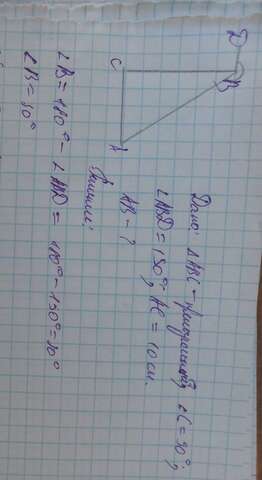 D
C
B
A
Дано: △ABC – прямоугольный, ∠C = 90°;
∠ABD = 150°; AC = 10 см.
AB – ?
Решение:
∠B = 180° – ∠ABD = 180° – 150° = 30°
∠B = 30°